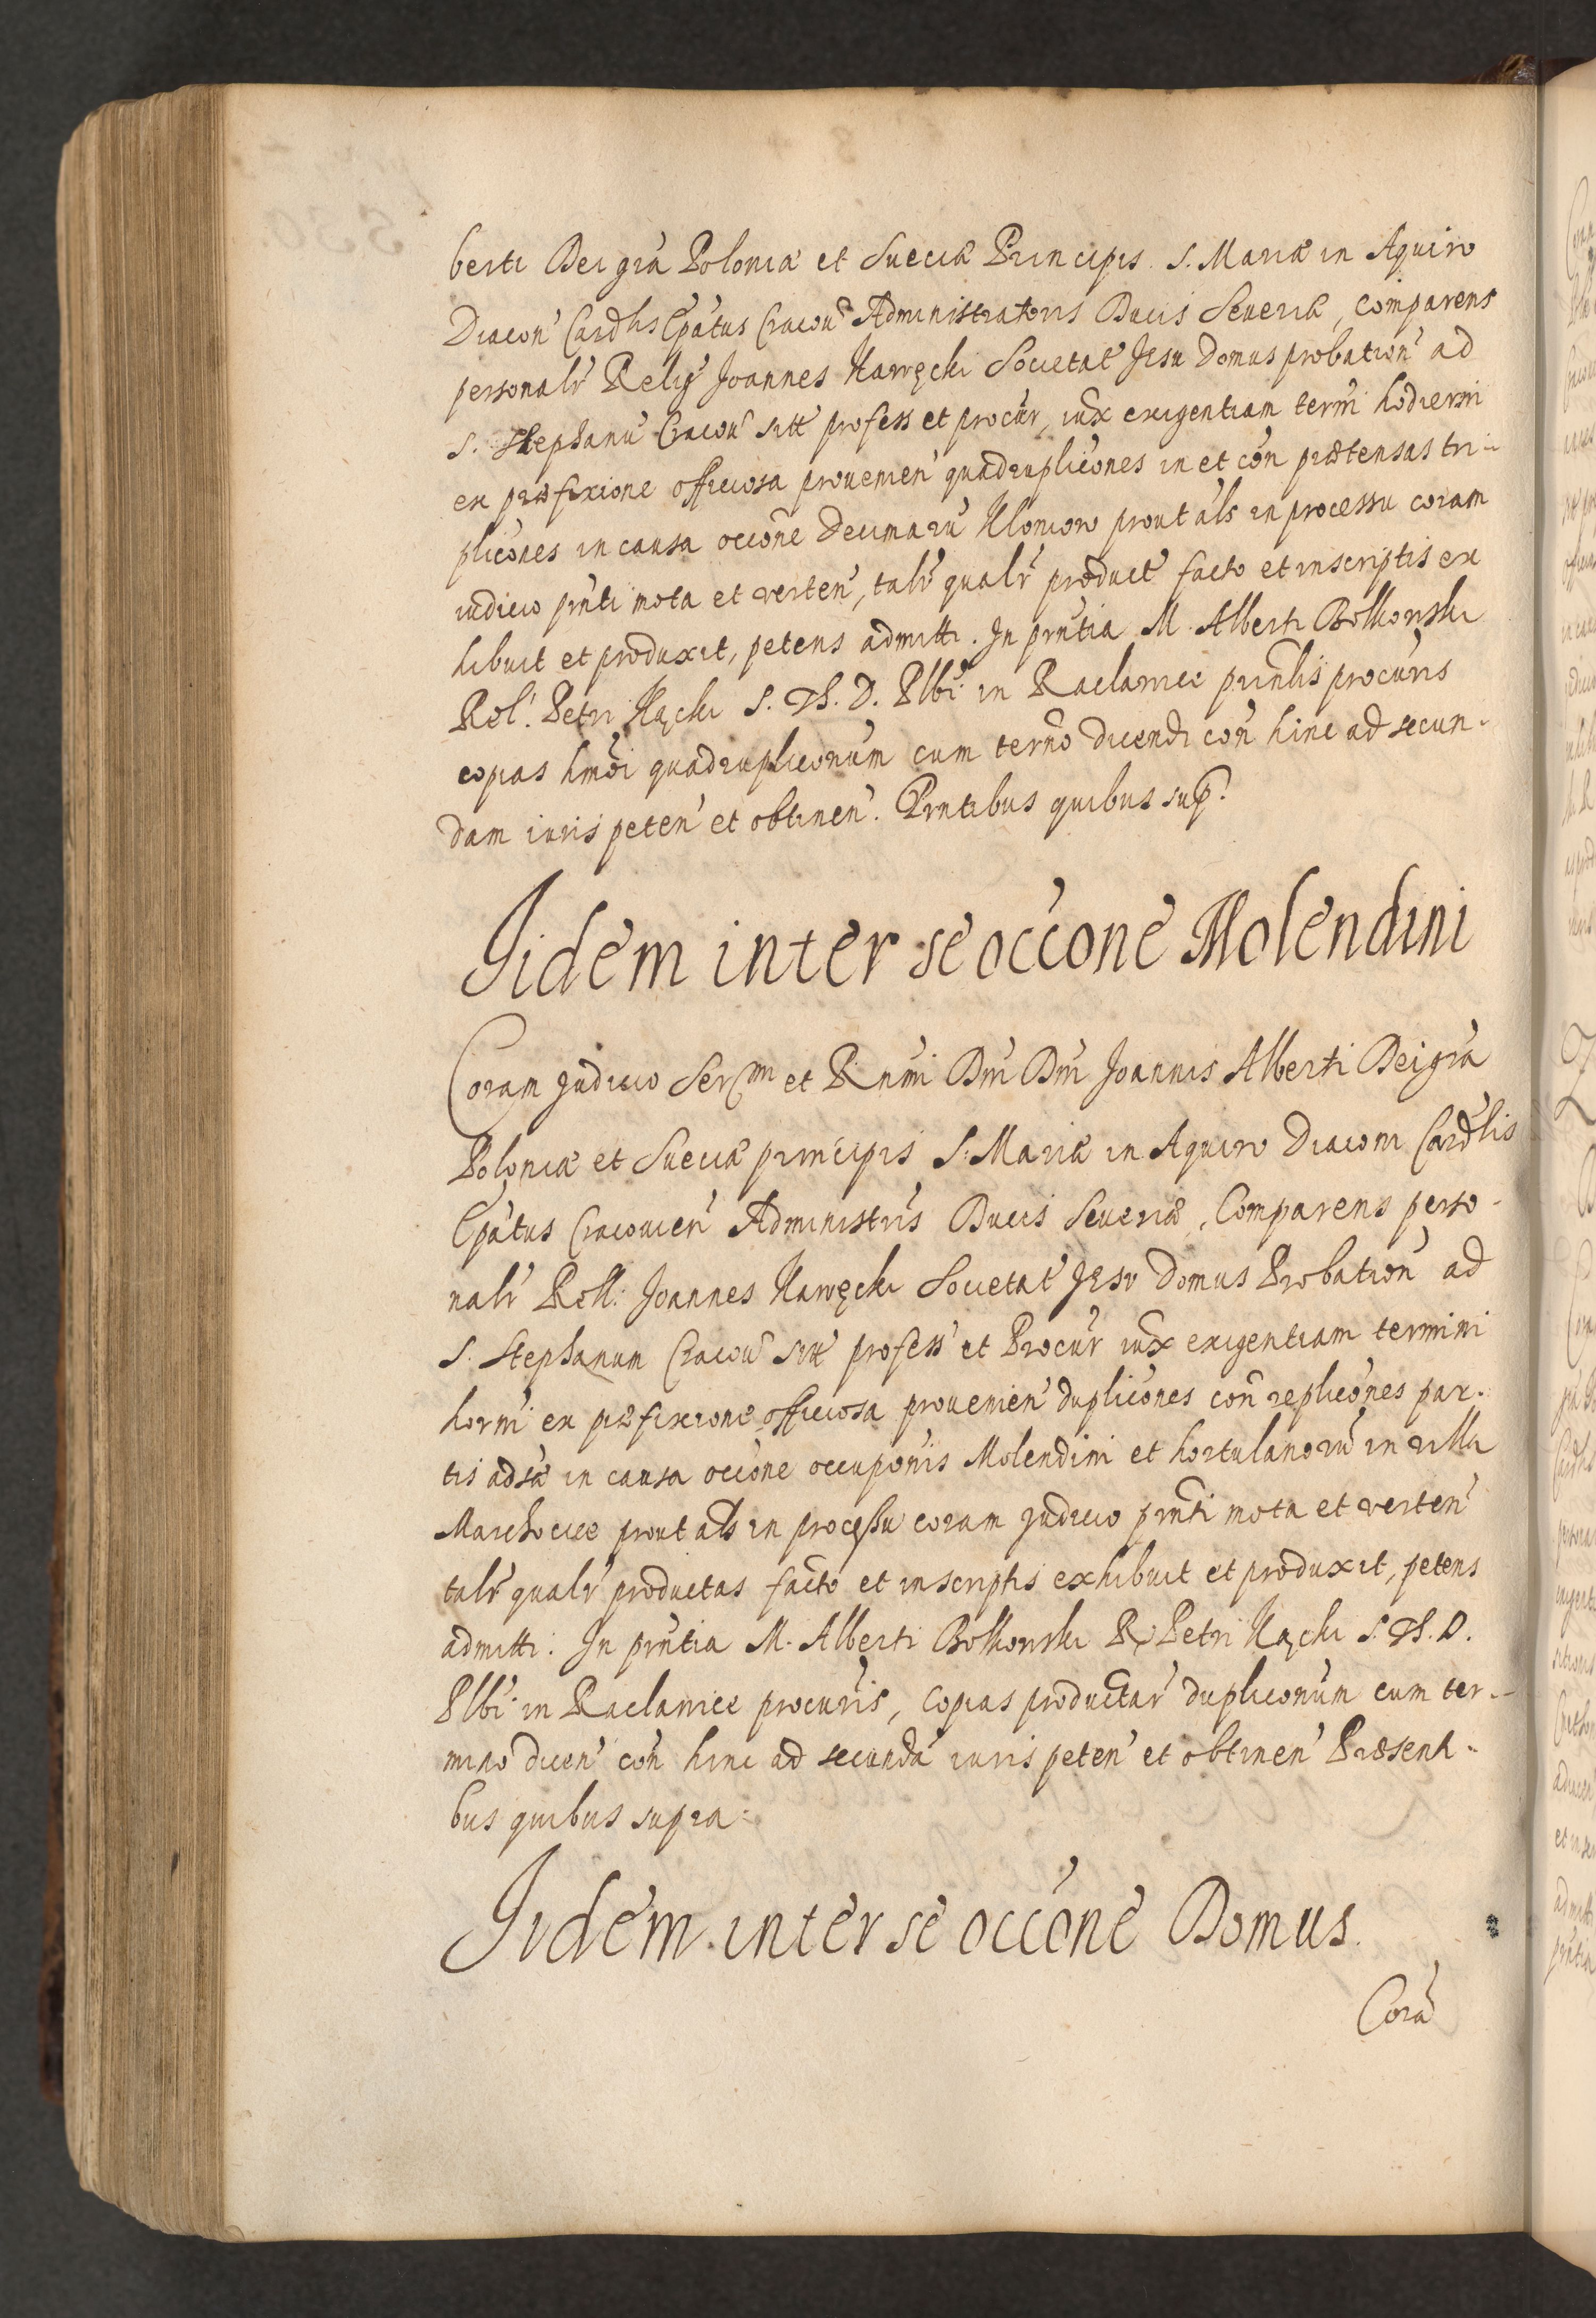 berti Dei gr̃a Poloniæ et Sueciæ Principis S. Mariæ in Aquiro
Diacon̄ Card̃lis Ep̃atus Cracou͂ Administratoris Ducis Seueriæ, comparens
personalr̃ Relig̃ Joannes Hawęcki Societat̃ Jesu Domus probation̄ ad
S. Stephanū Cracou͂ sitt̃ profess et procūr, iux̃ exigentiam term̄i hodierni
ex præfixione officiosa prouenien̄ quadruplic̄ones in et con̄ prætensas tri-
plic̄ones in causa occ̄one Decimarū Uloniow prout al̃s in processu coram
iudicio pr̃nti mota et verten̄, talr̃ qualr̃ product̃ facto et in scriptis ex
hibuit et produxit, petens admitti. In pr̃ntia M. Alberti Bolkowski
Rel: Petri Kącki S. Th. D. Plbī in Raclawice prin̄lis procūris
copias hm̃oi quadruplic̄onum cum term̄o dicendi con̄ hinc ad secun-
dam iuris peten̄ et obtinen̄. Prñtibus quibus sup̃.
Iidem inter se occ̄one Molendini
Coram Judicio Ser̃m et Rñmi Dn̄i Dn̄i Joannis Alberti Dei gr̃a
Poloniæ et Sueciæ principis S: Mariæ in Aquiro Diaconi Card̃lis
Ep̃atus Cracouien̄ Administr̃is Ducis Seueriæ, Comparens perso-
nalr̃ Rell: Joannes Hawęcki Societat̃ Jesu Domus Probation̄ ad
S. Stephanum Cracou͂ sitt̃ profess̃ et Procūr iux̃ exigentiam termini
horn̄i ex præfixione officiosa prouenien̄ duplic̄ones con̄ replic̄ones par-
tis adsæ in causa occ̄one occupōnis Molendini et hortulanorū in villa
Marchocice prout al̃s in processu coram Judicio pr̃nti mota et verten̄
talr̃ qualr̃ productas facto et in scriptis exhibuit et produxit, petens
admitti. In pr̃ntia M. Alberti Bolkowski R. Petri Kącki S. Th. D.
Plbī in Raclawice procūris, copias productar̃ duplic̄onum cum ter-
mino dicen̄ con̄ hinc ad secundā iuris peten̄ et obtinen̄ Præsenti-
bus quibus supra:
Iidem inter se occ̄one Domus.
Corā